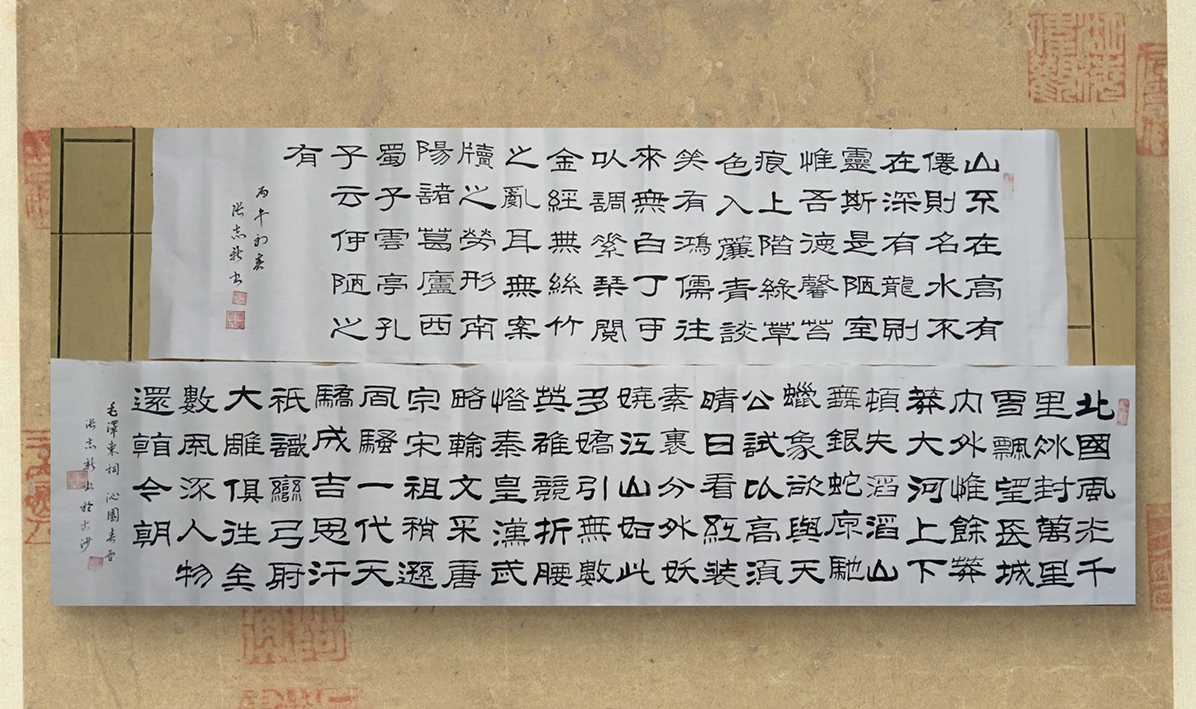 山不在高有
僊則名水不
在深有龍則
靈斯是陋室
惟吾德馨苔
痕上階綠草
色入簾青談
笑有鴻儒往
來無白丁可
以調素琴閱
金經無絲竹
之亂耳無案
牘之勞形南
陽諸葛廬西
蜀子雲亭孔
子云何陋之
有
丙午初春
張志新书
北國風光千
里冰封萬里
雪飄望長城
內外惟餘莽
莽大河上下
頓失滔滔山
舞銀蛇原馳
蠟象欲與天
公試比高須
晴日看紅裝
素裹分外妖
嬈江山如此
多嬌引無數
英雄競折腰
惜秦皇漢武
略輸文采唐
宗宋祖稍遜
風騷一代天
驕成吉思汗
祇識彎弓射
大雕俱往矣
數風流人物
還看今朝
毛澤東詞 沁園春雪
張志新书於长沙